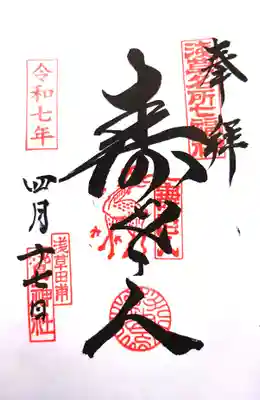 奉拝
浅草名所七福神
寿老人
令和七年
四月十七日
浅草田甫
鷲神社